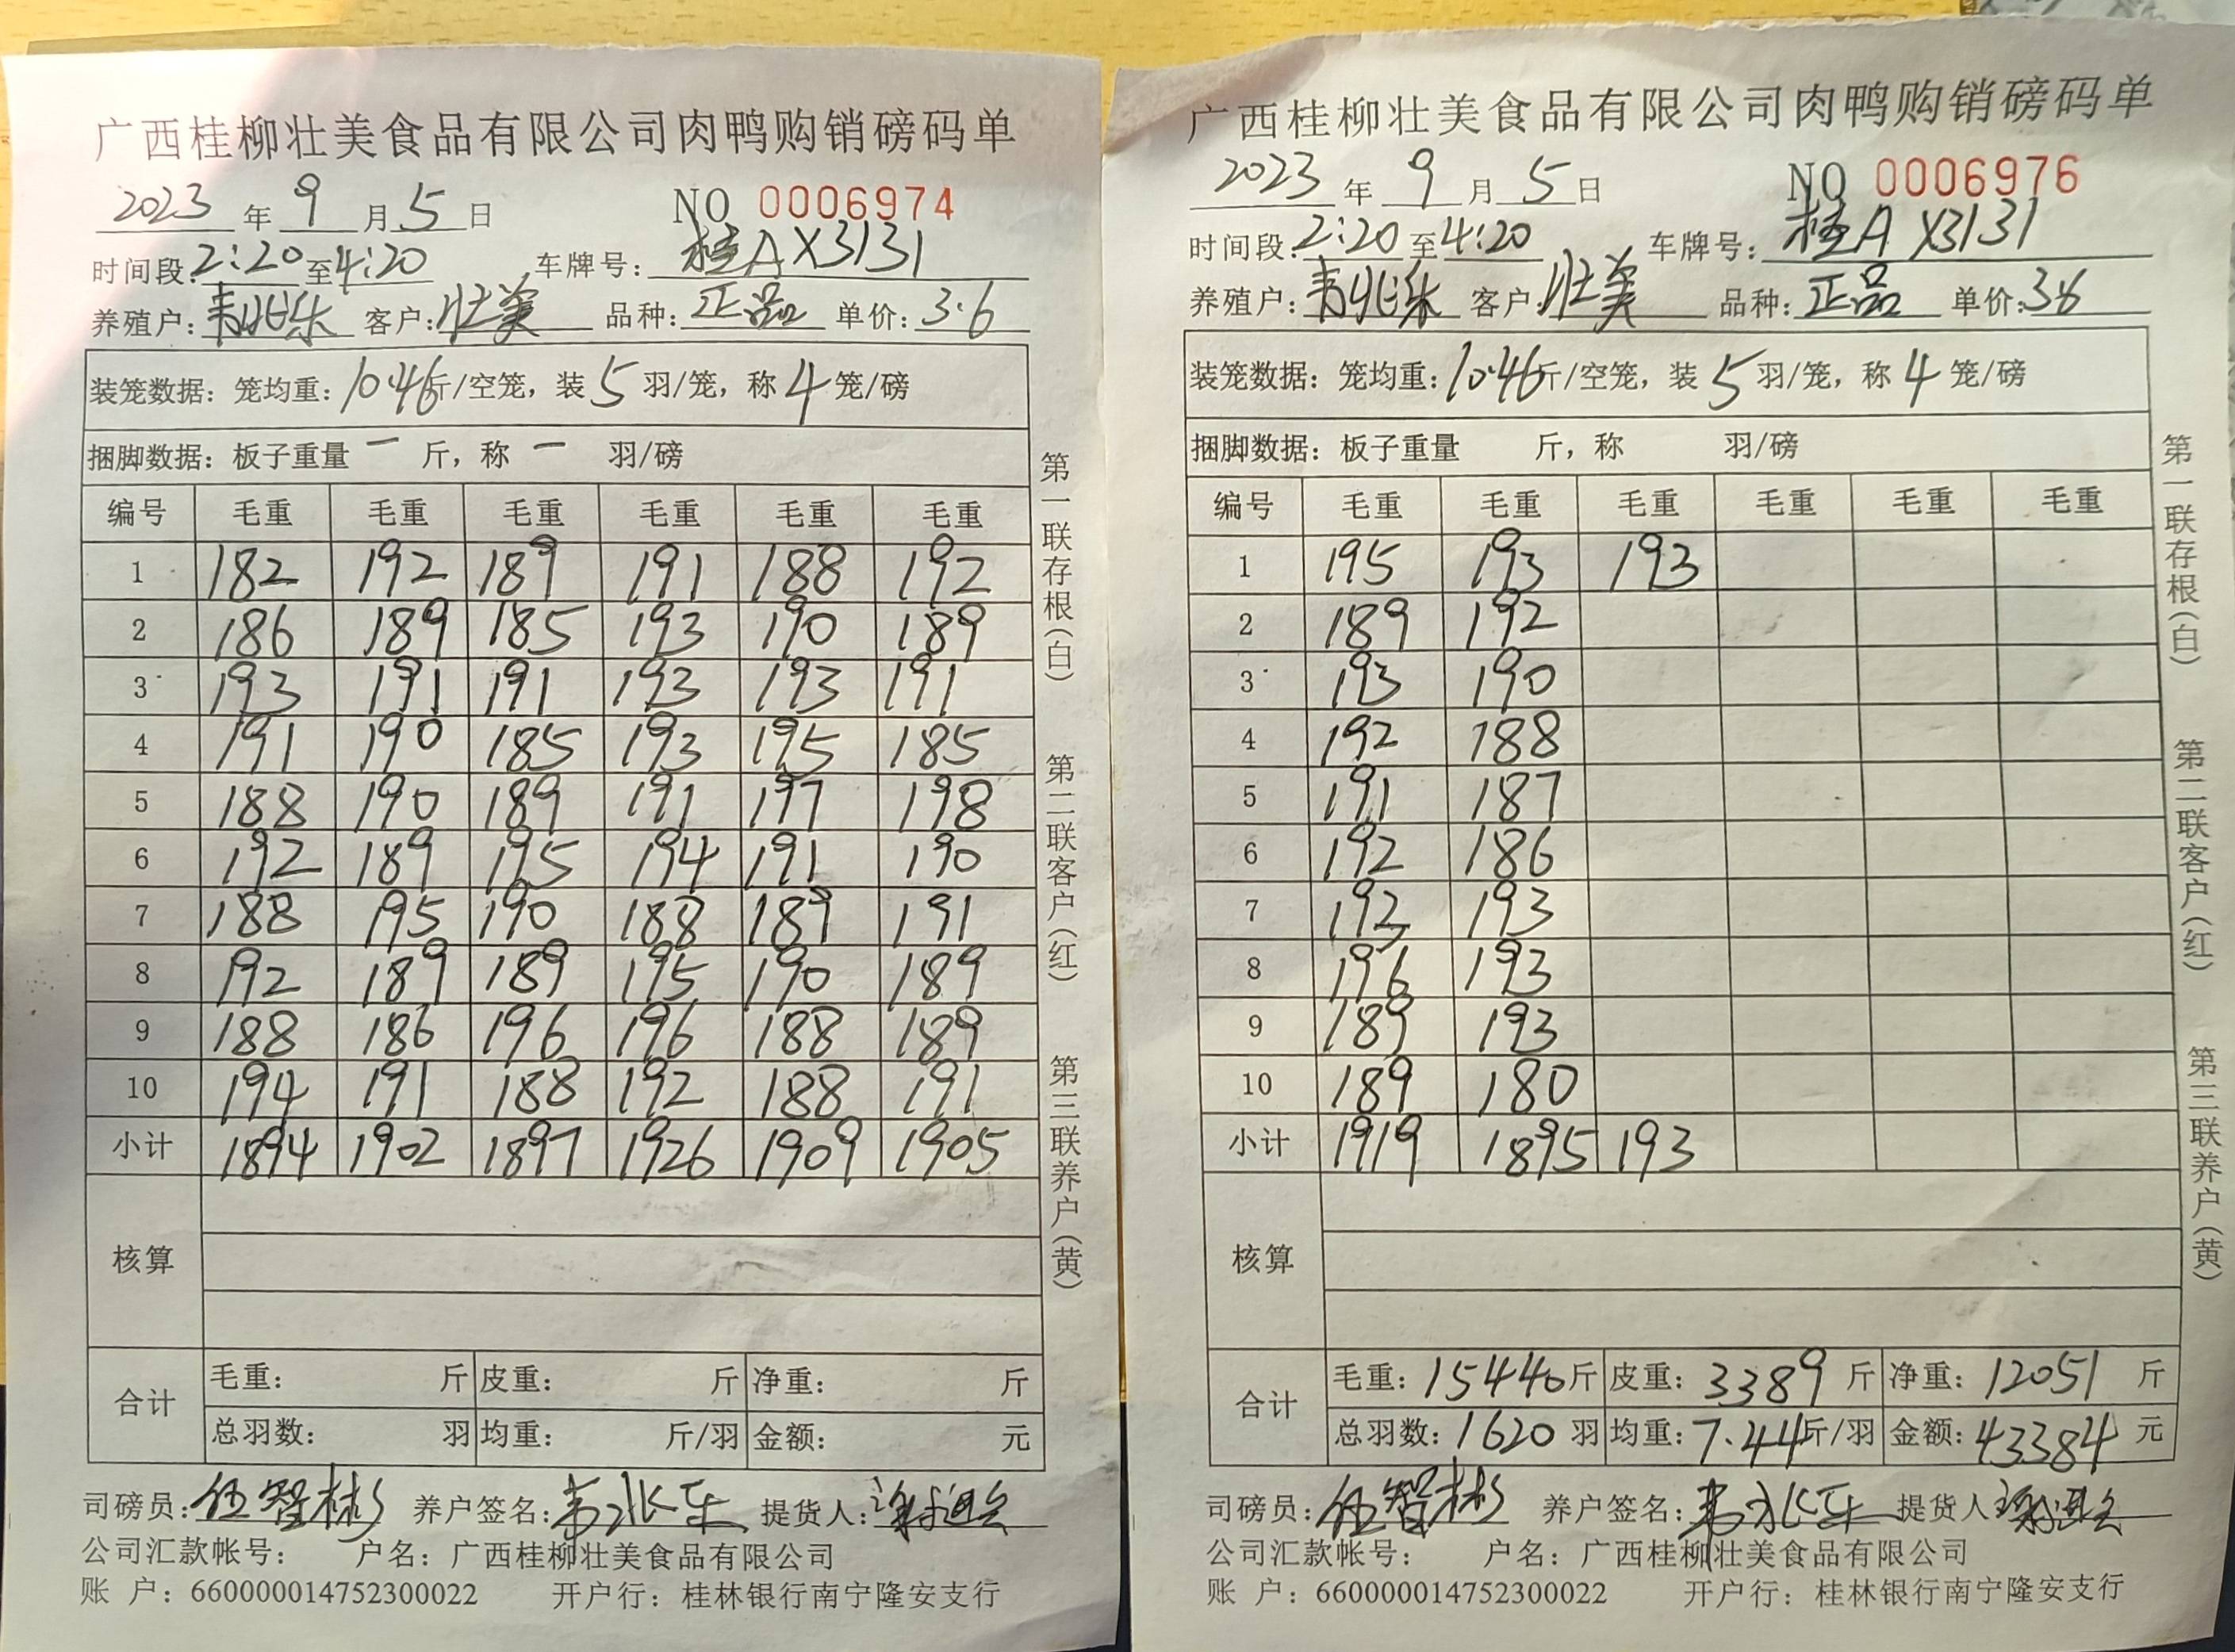 广西桂柳壮美食品有限公司肉鸭购销磅码单
2023 年 9 月 5 日 NO 0006974
时间段:2:20至4:20 车牌号:桂A X3131
养殖户:韦兆乐 客户:壮美 品种:正品 单价:3.6
装笼数据:笼均重:10.46斤/空笼,装 5 羽/笼,称 4 笼/磅
捆脚数据:板子重量 一 斤,称 一 羽/磅
编号 毛重 毛重 毛重 毛重 毛重 毛重
1 182 192 189 191 188 192
2 186 189 185 193 190 189
3 193 191 191 193 193 191
4 191 190 185 193 195 185
5 188 190 189 191 197 198
6 192 189 195 194 191 190
7 188 195 190 188 189 191
8 192 189 189 195 190 189
9 188 186 196 196 188 189
10 194 191 188 192 188 191
小计 1894 1902 1897 1926 1909 1905
核算
合计 毛重: 斤 皮重: 斤 净重: 斤
总羽数: 羽 均重: 斤/羽 金额: 元
司磅员:伍智彬 养户签名:韦兆乐 提货人:
公司汇款帐号: 户名:广西桂柳壮美食品有限公司
账 户:660000014752300022 开户行:桂林银行南宁隆安支行
第一联存根(白) 第二联客户(红) 第三联养户(黄)
广西桂柳壮美食品有限公司肉鸭购销磅码单
2023 年 9 月 5 日 NO 0006976
时间段:2:20至4:20 车牌号:桂A X3131
养殖户:韦兆乐 客户:壮美 品种:正品 单价:3.6
装笼数据:笼均重:10.46斤/空笼,装 5 羽/笼,称 4 笼/磅
捆脚数据:板子重量 斤,称 羽/磅
编号 毛重 毛重 毛重 毛重 毛重 毛重
1 195 193 193
2 189 192
3 193 190
4 192 188
5 191 187
6 192 186
7 193 193
8 196 193
9 189 193
10 189 180
小计 1919 1895 193
核算
合计 毛重:15440斤 皮重:3389斤 净重:12051 斤
总羽数:1620 羽 均重:7.44斤/羽 金额:43384 元
司磅员:伍智彬 养户签名:韦兆乐 提货人:
公司汇款帐号: 户名:广西桂柳壮美食品有限公司
账 户:660000014752300022 开户行:桂林银行南宁隆安支行
第一联存根(白) 第二联客户(红) 第三联养户(黄)